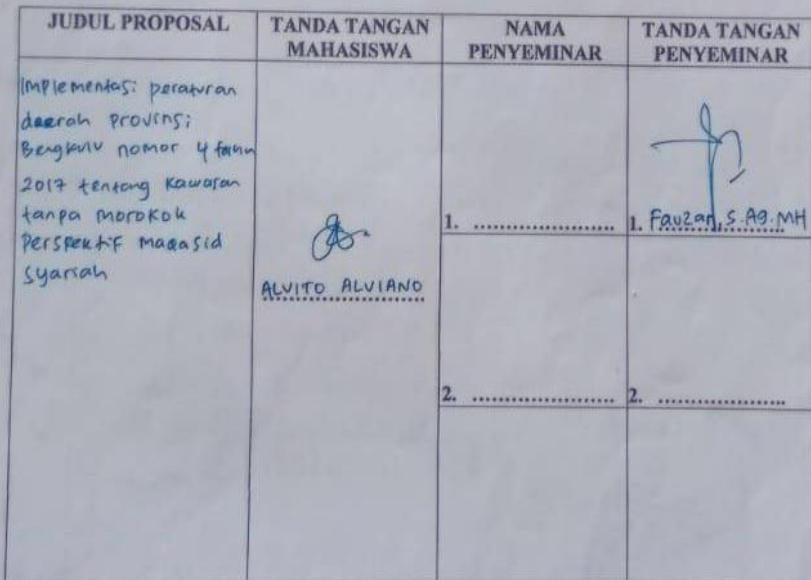 JUDUL PROPOSAL
TANDA TANGAN
MAHASISWA
NAMA
PENYEMINAR
TANDA TANGAN
PENYEMINAR
Implementasi peraturan
daerah Provinsi
Bengkulu nomor 4 tahun
2017 tentang Kawasan
tanpa morokok
Perspektif maqasid
syariah
ALVITO ALVIANO
1. ........................
1. Fauzan, S.Ag.MH
2. ........................
2. .....................